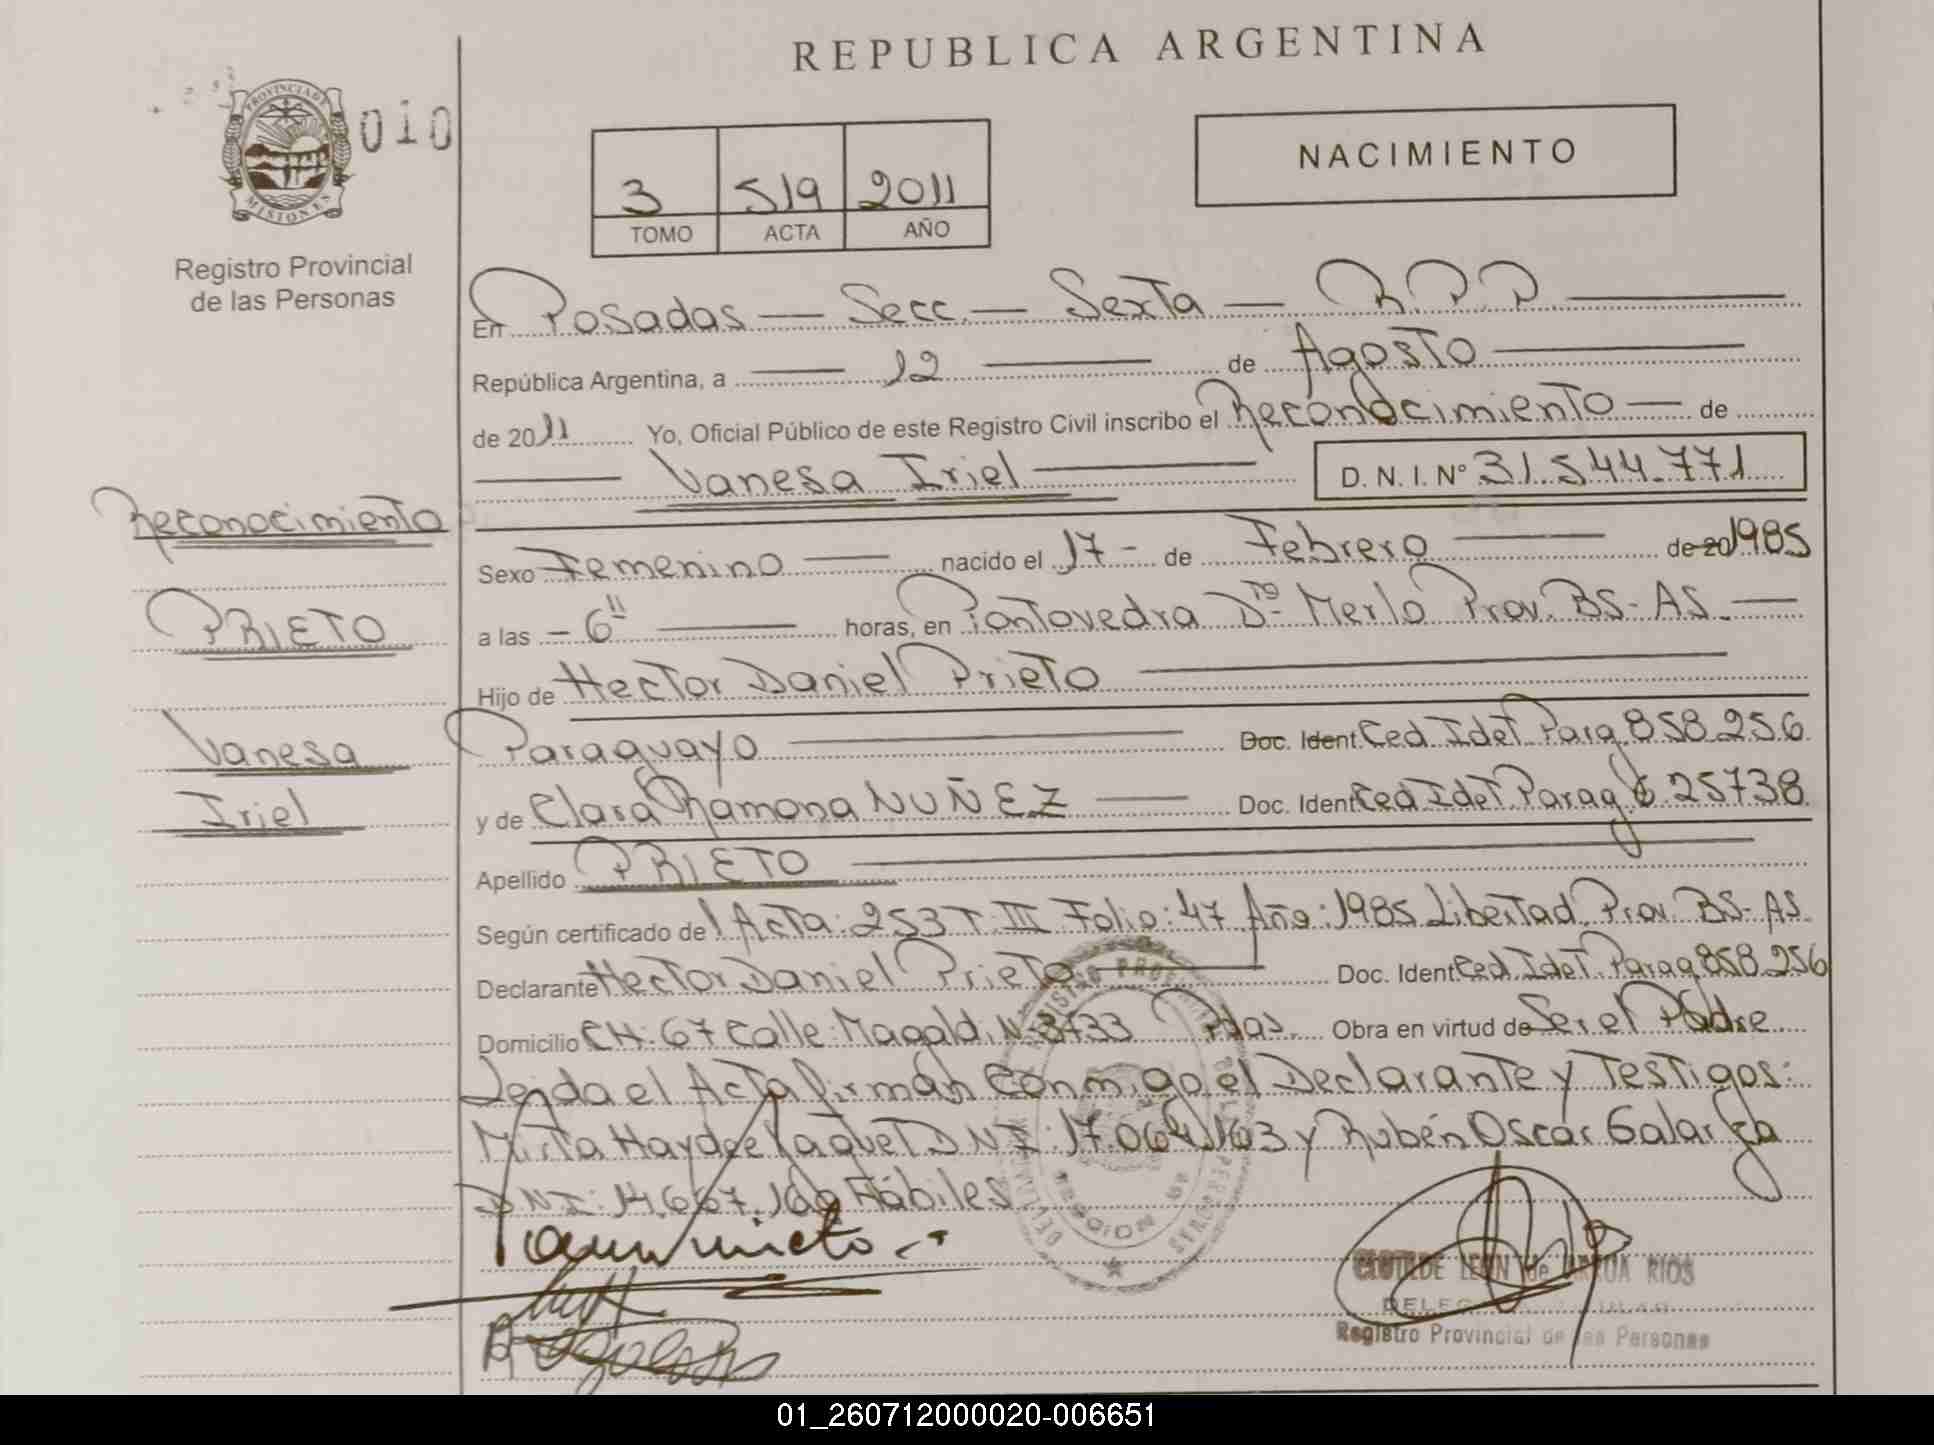 REPUBLICA ARGENTINA
PROVINCIA DE
MISIONES
010
Registro Provincial
de las Personas
3 519 2011
TOMO ACTA AÑO
NACIMIENTO
En Posadas — Secc. — Sexta — R.P.P
República Argentina, a 12 de Agosto
de 2011 Yo, Oficial Público de este Registro Civil inscribo el Reconocimiento — de
Vanesa Iriel D.N.I. Nº 31.544.771
Reconocimiento
Sexo Femenino nacido el 17 - de Febrero de 20 1985
PRIETO
a las - 6 horas, en Pontovedra Dto Merlo Prov. BS-AS.
Hijo de Hector Daniel Prieto
Vanesa
Paraguayo Doc. Ident. Ced IdeT Parag 858.256
Iriel
y de Clara Ramona NUÑEZ Doc. Ident Ced IdeT Parag 625738
Apellido PRIETO
Según certificado de Acta: 253 T. III Folio: 47 Año: 1985 Libertad Prov. BS-AS.
Declarante Hector Daniel Prieto Doc. Ident Ced IdeT Parag 858.256
Domicilio CH: 67 Calle: Magaldi N 3733 Pdas. Obra en virtud de Ser el Padre
Leida el Acta firman Conmigo el Declarante y Testigos:
Mirta Haydee DNI: 17.064.163 y Rubén Oscar Galarza
DNI: 14.667.169 Hábiles
CLOTILDE LEON de RIOS
Registro Provincial de las Personas
01_260712000020-006651